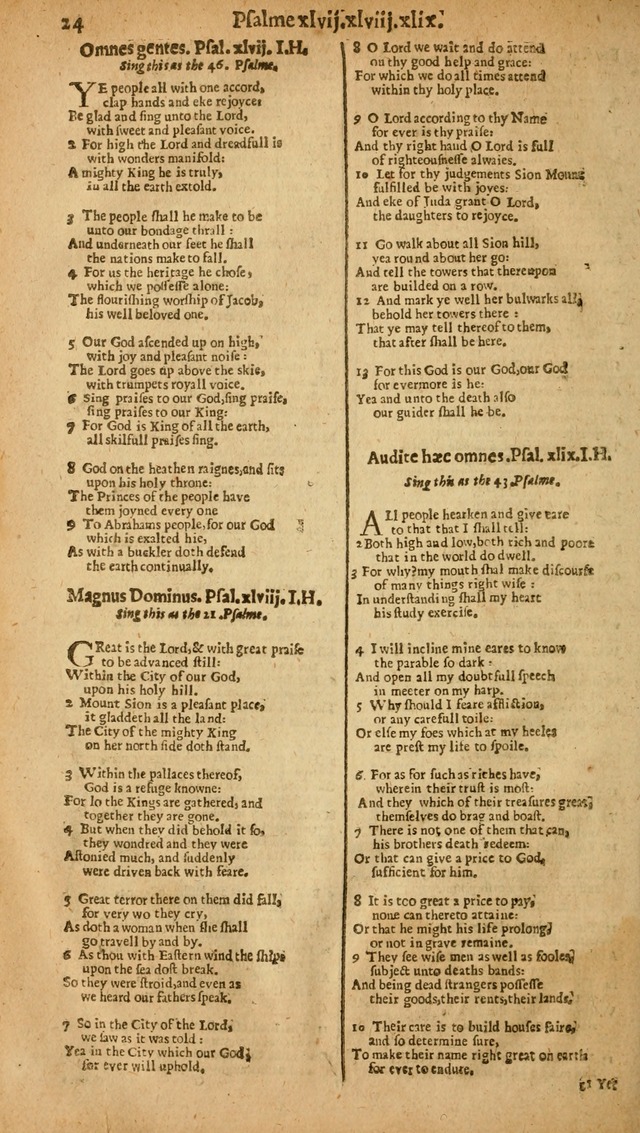 24
Pſalme xlvij.xlviij.xlix.
Omnes gentes. Pſal. xlvij. I.H.
Sing this as the 46. Pſalme.
YE people all with one accord,
clap hands and eke rejoyce:
Be glad and ſing unto the Lord,
with ſweet and pleaſant voice.
2 For high the Lord and dreadfull is
with wonders manifold:
A mighty King he is truly,
in all the earth extold.
3 The people ſhall he make to be
unto our bondage thrall :
And underneath our feet he ſhall
the nations make to fall.
4 For us the heritage he choſe,
which we poſſeſſe alone:
The flouriſhing worſhip of Jacob,
his well beloved one.
5 Our God aſcended up on high,
with joy and pleaſant noiſe :
The Lord goes up above the skie,
with trumpets royall voice.
6 Sing praiſes to our God, ſing praiſe,
ſing praiſes to our King:
7 For God is King of all the earth,
all skilfull praiſes ſing.
8 God on the heathen raignes, and ſits
upon his holy throne:
The Princes of the people have
them joyned every one
9 To Abrahams people, for our God
which is exalted hie,
As with a buckler doth defend
the earth continually.
Magnus Dominus. Pſal. xlviij. I.H.
Sing this as the 21. Pſalme.
GReat is the Lord, & with great praiſe
to be advanced ſtill:
Within the City of our God,
upon his holy hill.
2 Mount Sion is a pleaſant place,
it gladdeth all the land:
The City of the mighty King
on her north ſide doth ſtand.
3 Within the pallaces thereof,
God is a refuge knowne:
For lo the Kings are gathered, and
together they are gone.
4 But when they did behold it ſo,
they wondred and they were
Aſtonied much, and ſuddenly
were driven back with feare.
5 Great terror there on them did fall,
for very wo they cry,
As doth a woman when ſhe ſhall
go travell by and by.
6 As thou with Eaſtern wind the ſhips
upon the ſea doſt break.
So they were ſtroid, and even as
we heard our fathers ſpeak.
7 So in the City of the Lord,
we ſaw as it was told :
Yea in the City which our God,
for ever will uphold.
8 O Lord we wait and do attend
on thy good help and grace:
For which we do all times attend
within thy holy place.
9 O Lord according to thy Name
for ever is thy praiſe:
And thy right hand O Lord is full
of righteouſneſſe alwaies.
10 Let for thy judgements Sion Mount
fulfilled be with joyes:
And eke of Juda grant O Lord,
the daughters to rejoyce.
11 Go walk about all Sion hill,
yea round about her go:
And tell the towers that thereupon
are builded on a row.
12 And mark ye well her bulwarks all,
behold her towers there :
That ye may tell thereof to them,
that after ſhall be here.
13 For this God is our God, our God
for evermore is he:
Yea and unto the death alſo
our guider ſhall he be.
Audite hæc omnes. Pſal. xlix. I.H.
Sing this as the 43 Pſalme.
ALl people hearken and give eare
to that that I ſhall tell:
2 Both high and low, both rich and poore
that in the world do dwell.
3 For why? my mouth ſhal make diſcourſe
of many things right wiſe :
In underſtanding ſhall my heart
his ſtudy exerciſe.
4 I will incline mine eares to know
the parable ſo dark :
And open all my doubtfull ſpeech
in meeter on my harp.
5 Why ſhould I feare affliction,
or any carefull toile:
Or elſe my foes which at my heeles
are preſt my life to ſpoile.
6. For as for ſuch as riches have,
wherein their truſt is moſt:
And they which of their treaſures great,
themſelves do brag and boaſt.
7 There is not one of them that can,
his brothers death redeem:
Or that can give a price to God,
ſufficient for him.
8 It is too great a price to pay,
none can thereto attaine:
Or that he might his life prolong,
or not in grave remaine.
9 They ſee wiſe men as well as fooles,
ſubject unto deaths bands:
And being dead ſtrangers poſſeſſe
their goods, their rents, their lands.
10 Their care is to build houſes faire,
and ſo determine ſure,
To make their name right great on earth
for ever to endure.
11 Yet